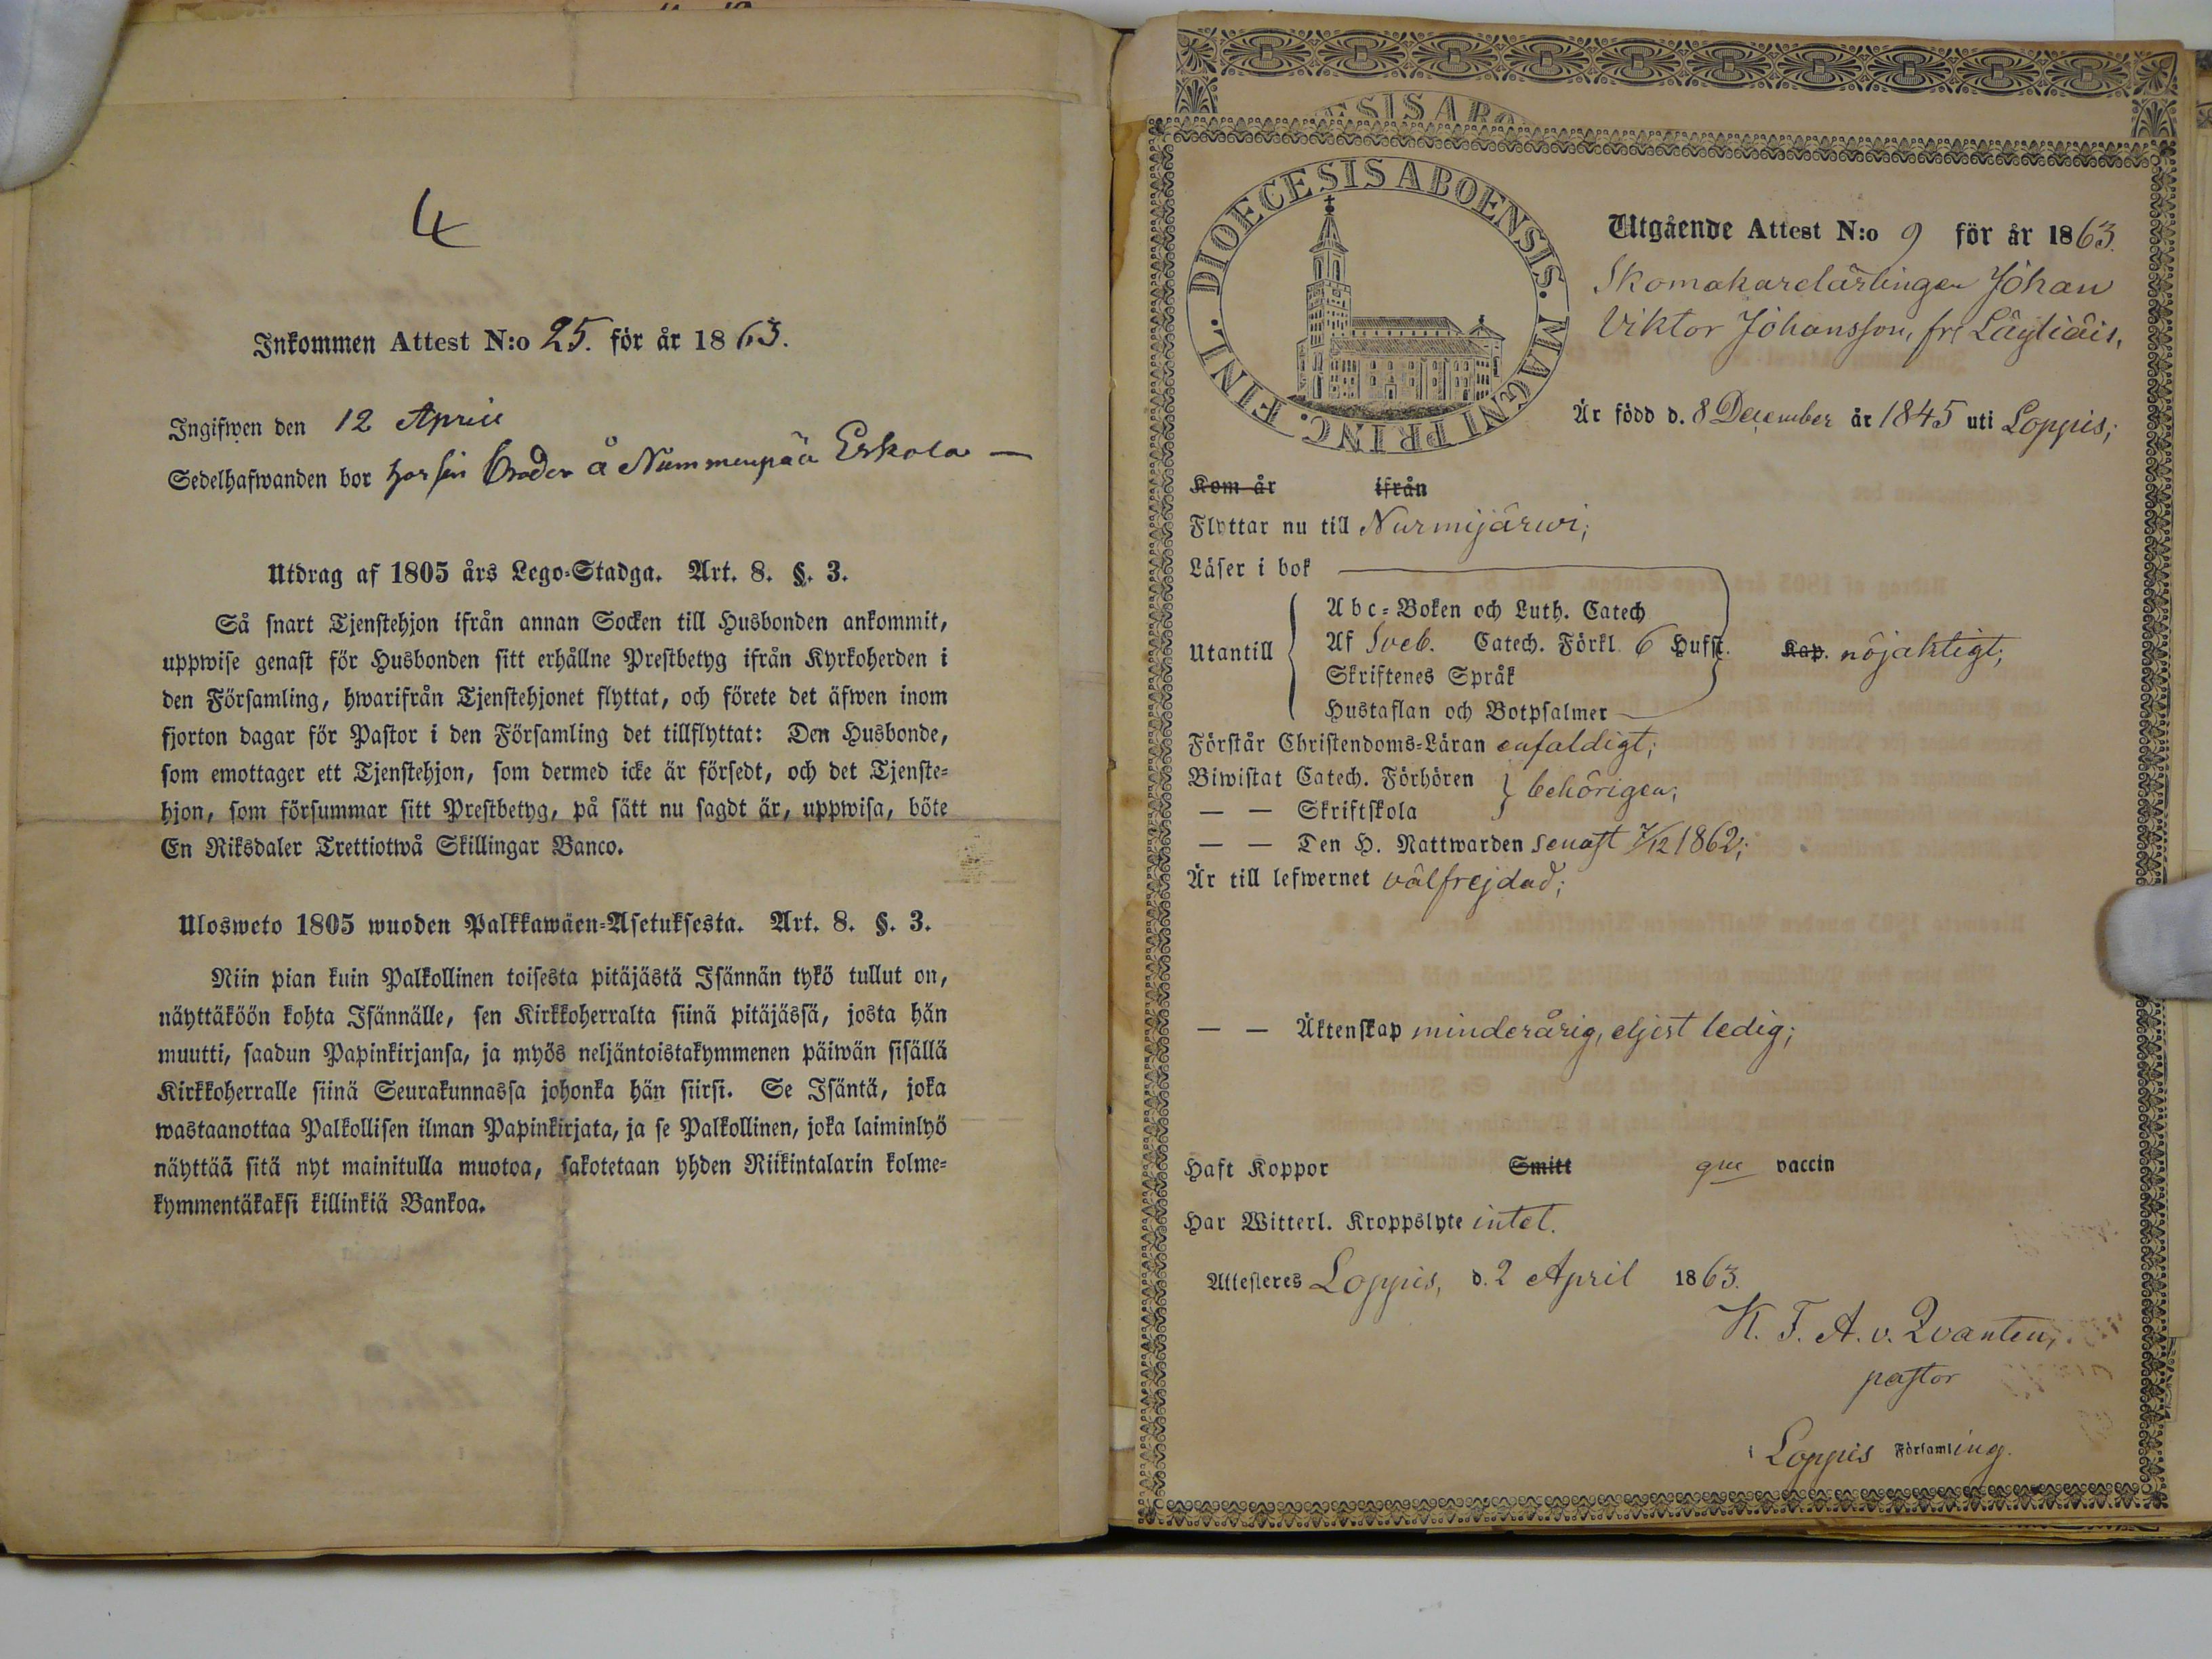 4
Inkommen Attest N:o 25. för år 1863.
Ingifwen den 12 April
Sedelhafwanden bor hos sin Broder å Nummenpää Eskola —
Utdrag af 1805 års Lego-Stadga. Art. 8. §. 3.
Så snart Tjenstehjon ifrån annan Socken till Husbonden ankommit,
uppwise genast för Husbonden sitt erhållne Prestbetyg ifrån Kyrkoherden i
den Församling, hwarifrån Tjenstehjonet flyttat, och förete det äfwen inom
fjorton dagar för Pastor i den Församling det tillflyttat: Den Husbonde,
som emottager ett Tjenstehjon, som dermed icke är försedt, och det Tjenste-
hjon, som försummar sitt Prestbetyg, på sätt nu sagdt är, uppwisa, böte
En Riksdaler Trettiotwå Skillingar Banco.
Ulosweto 1805 wuoden Palkkawäen-Asetuksesta. Art. 8. §. 3.
Niin pian kuin Palkollinen toisesta pitäjästä Isännän tykö tullut on,
näyttäköön kohta Isännälle, sen Kirkkoherralta siinä pitäjässä, josta hän
muutti, saadun Papinkirjansa, ja myös neljäntoistakymmenen päiwän sisällä
Kirkkoherralle siinä Seurakunnassa johonka hän siirsi. Se Isäntä, joka
wastaanottaa Palkollisen ilman Papinkirjata, ja se Palkollinen, joka laiminlyö
näyttää sitä nyt mainitulla muotoa, sakotetaan yhden Riikintalarin kolme-
kymmentäkaksi killinkiä Bankoa.
ESIS ABO
DIOECESIS ABOENSIS. MAGNI PRINC. FINL.
Utgående Attest N:o 9 för år 1863.
Skomakarelärlingen Johan
Viktor Johansson, fr. Läyliäis,
Är född d. 8 December år 1845 uti Loppis;
Kom år ifrån
Flyttar nu till Nurmijärwi;
Läser i bok
Utantill
Abc-Boken och Luth. Catech
Af Sveb. Catech. Förkl. 6 Hufst. Kap. nöjaktigt;
Skriftenes Språk
Hustaflan och Botpsalmer
Förstår Christendoms-Läran enfaldigt;
Biwistat Catech. Förhören behörigen;
— — Skriftskola
— — Den H. Nattwarden senast 7/12 1862;
Är till lefwernet välfrejdad;
— — Äktenskap minderårig, eljest ledig;
Haft Koppor Smitt gm vaccin
Har Witterl. Kroppslyte intet.
Attesteres Loppis, d. 2 April 1863.
K. F. A. v. Qvanten,
pastor
i Loppis Församling.